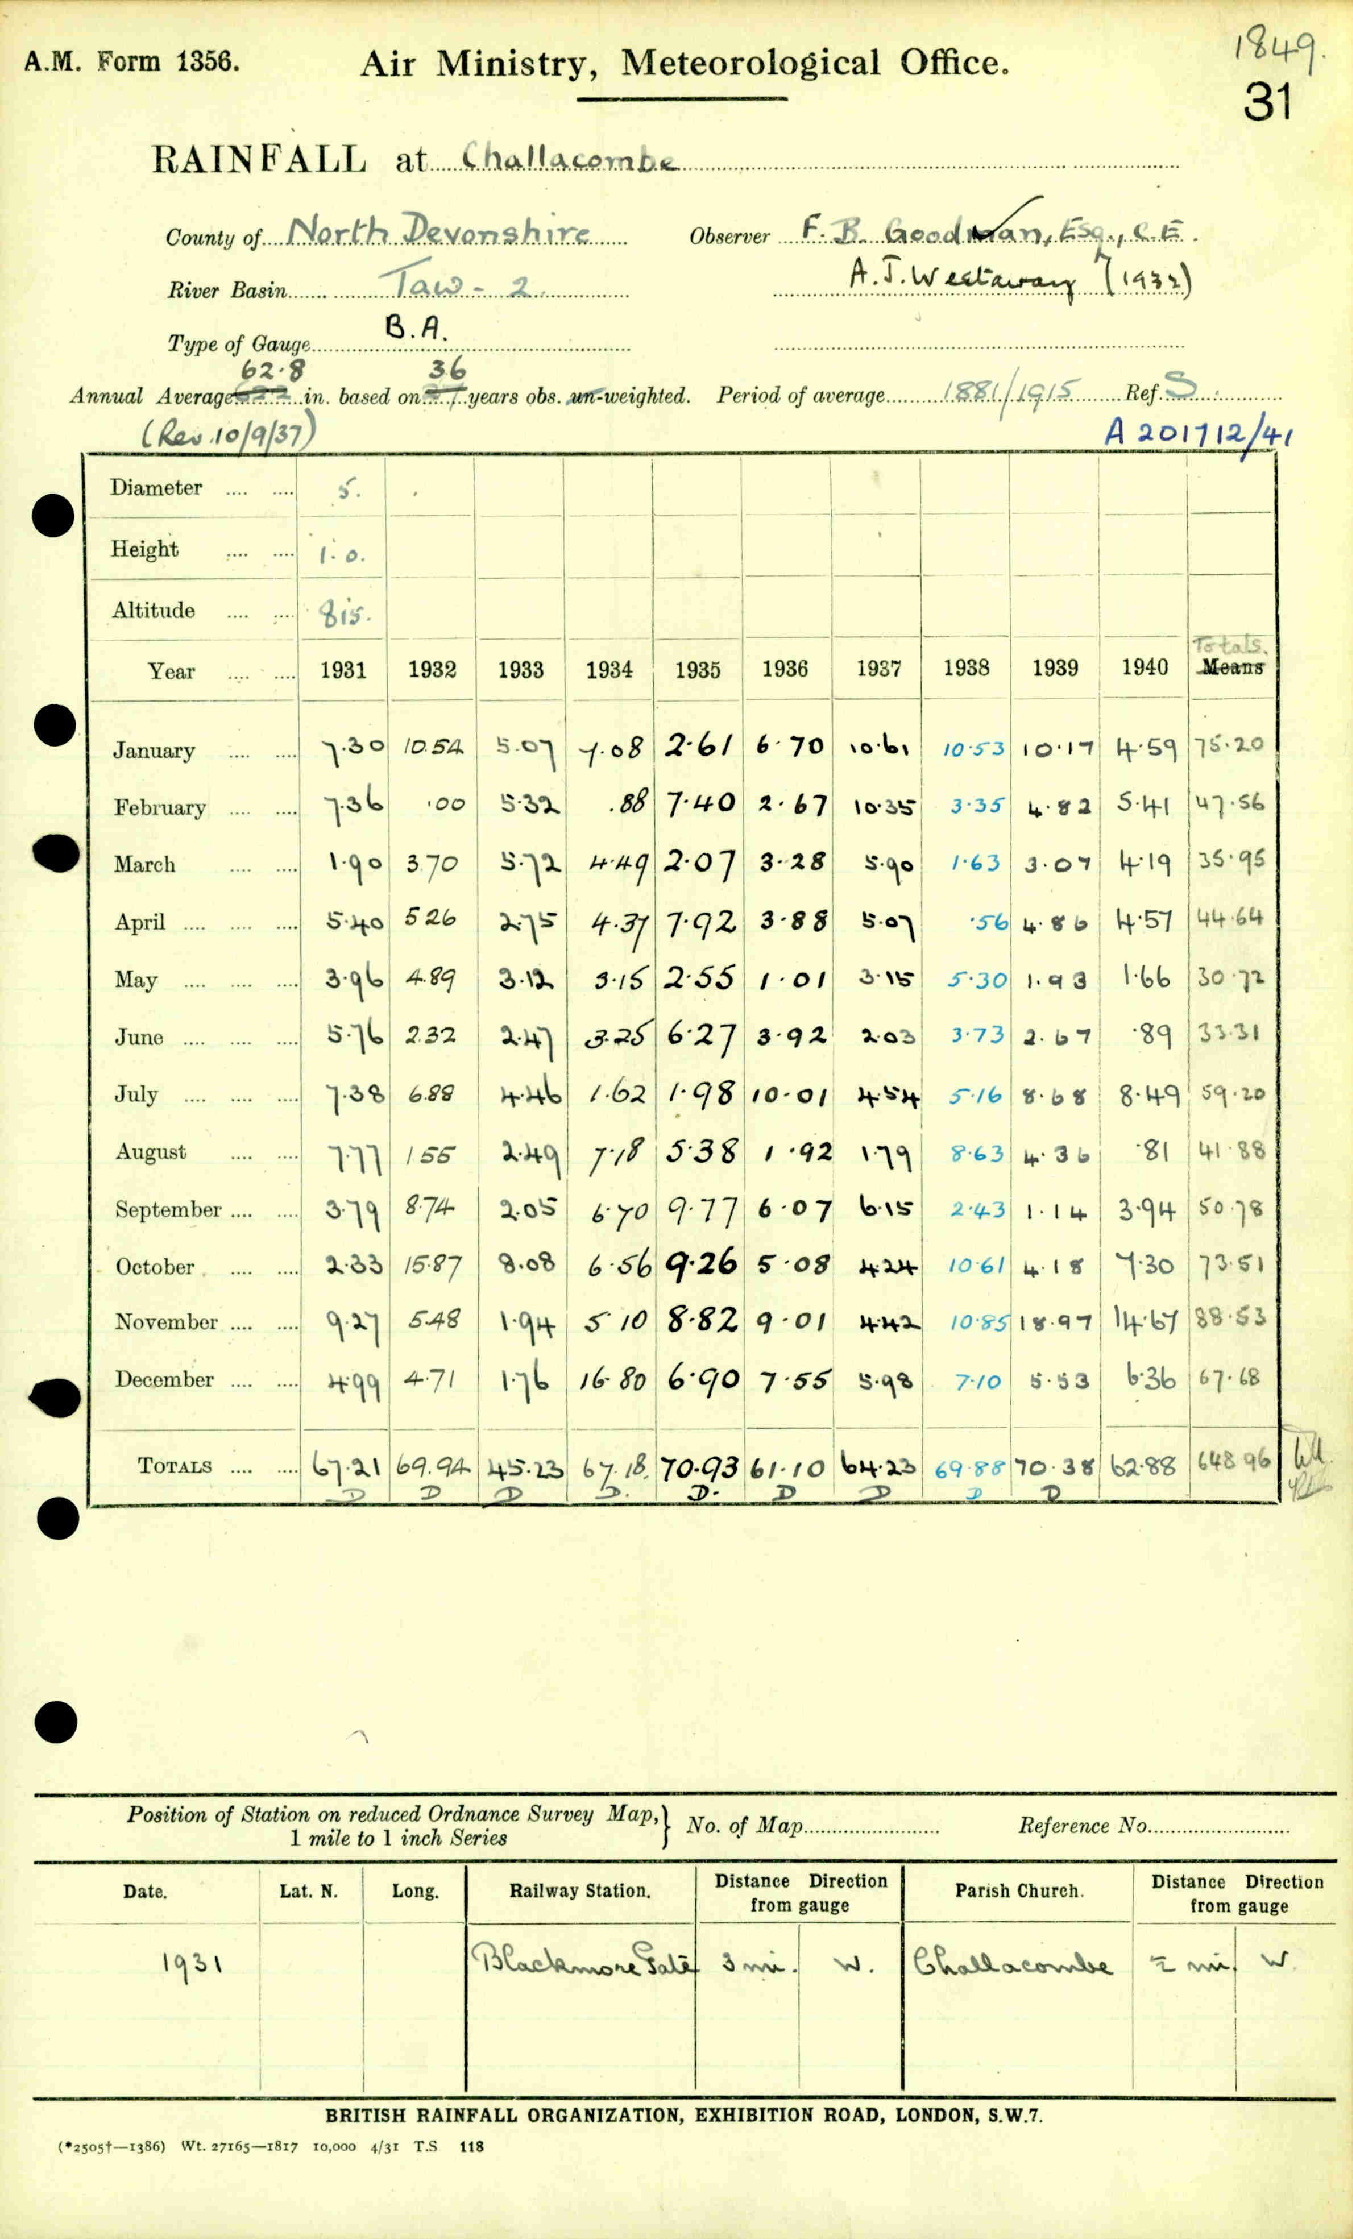 A.M. Form 1356.
Air Ministry, Meteorological Office.
1849.
31
RAINFALL at Challacombe
County of North Devonshire Observer F. B. Goodman, Esq., C.E.
River Basin Taw - 2. A. J. Westaway (1932)
Type of Gauge B.A.
62.8 36
Annual Average in. based on years obs. un-weighted. Period of average 1881/1915 Ref. S
(Rev 10/9/37) A 201712/41
Diameter 5.
Height 1.0.
Altitude 815.
Totals.
Year 1931 1932 1933 1934 1935 1936 1937 1938 1939 1940 Means
January 7.30 10.54 5.07 7.08 2.61 6.70 10.61 10.53 10.17 4.59 75.20
February 7.36 .00 5.32 .88 7.40 2.67 10.35 3.35 4.82 5.41 47.56
March 1.90 3.70 5.72 4.49 2.07 3.28 5.90 1.63 3.07 4.19 35.95
April 5.40 5 26 2.75 4.37 7.92 3.88 5.07 .56 4.86 4.57 44.64
May 3.96 4.89 3.12 3.15 2.55 1.01 3.15 5.30 1.93 1.66 30.72
June 5.76 2.32 2.47 3.25 6.27 3.92 2.03 3.73 2.67 .89 33.31
July 7.38 6.88 4.46 1.62 1.98 10.01 4.54 5.16 8.68 8.49 59.20
August 7.77 1 55 2.49 7.18 5.38 1.92 1.79 8.63 4.36 .81 41.88
September 3.79 8.74 2.05 6.70 9.77 6.07 6.15 2.43 1.14 3.94 50.78
October 2.33 15.87 8.08 6.56 9.26 5.08 4.24 10.61 4.18 7.30 73.51
November 9.27 5.48 1.94 5 10 8.82 9.01 4.42 10.85 18.97 14.67 88.53
December 4.99 4.71 1.76 16.80 6.90 7.55 5.98 7.10 5.53 6.36 67.68
TOTALS 67.21 69.94 45.23 67.18. 70.93 61.10 64.23 69.88 70.38 62.88 648.96
D D D D. D. D D D D
Position of Station on reduced Ordnance Survey Map,} No. of Map Reference No.
1 mile to 1 inch Series
Date. Lat. N. Long. Railway Station. Distance Direction from gauge Parish Church. Distance Direction from gauge
1931 Blackmore Gate 3 mi. W. Challacombe ½ mi. W.
BRITISH RAINFALL ORGANIZATION, EXHIBITION ROAD, LONDON, S.W.7.
(*2505†—1386) Wt. 27165—1817 10,000 4/31 T.S 118